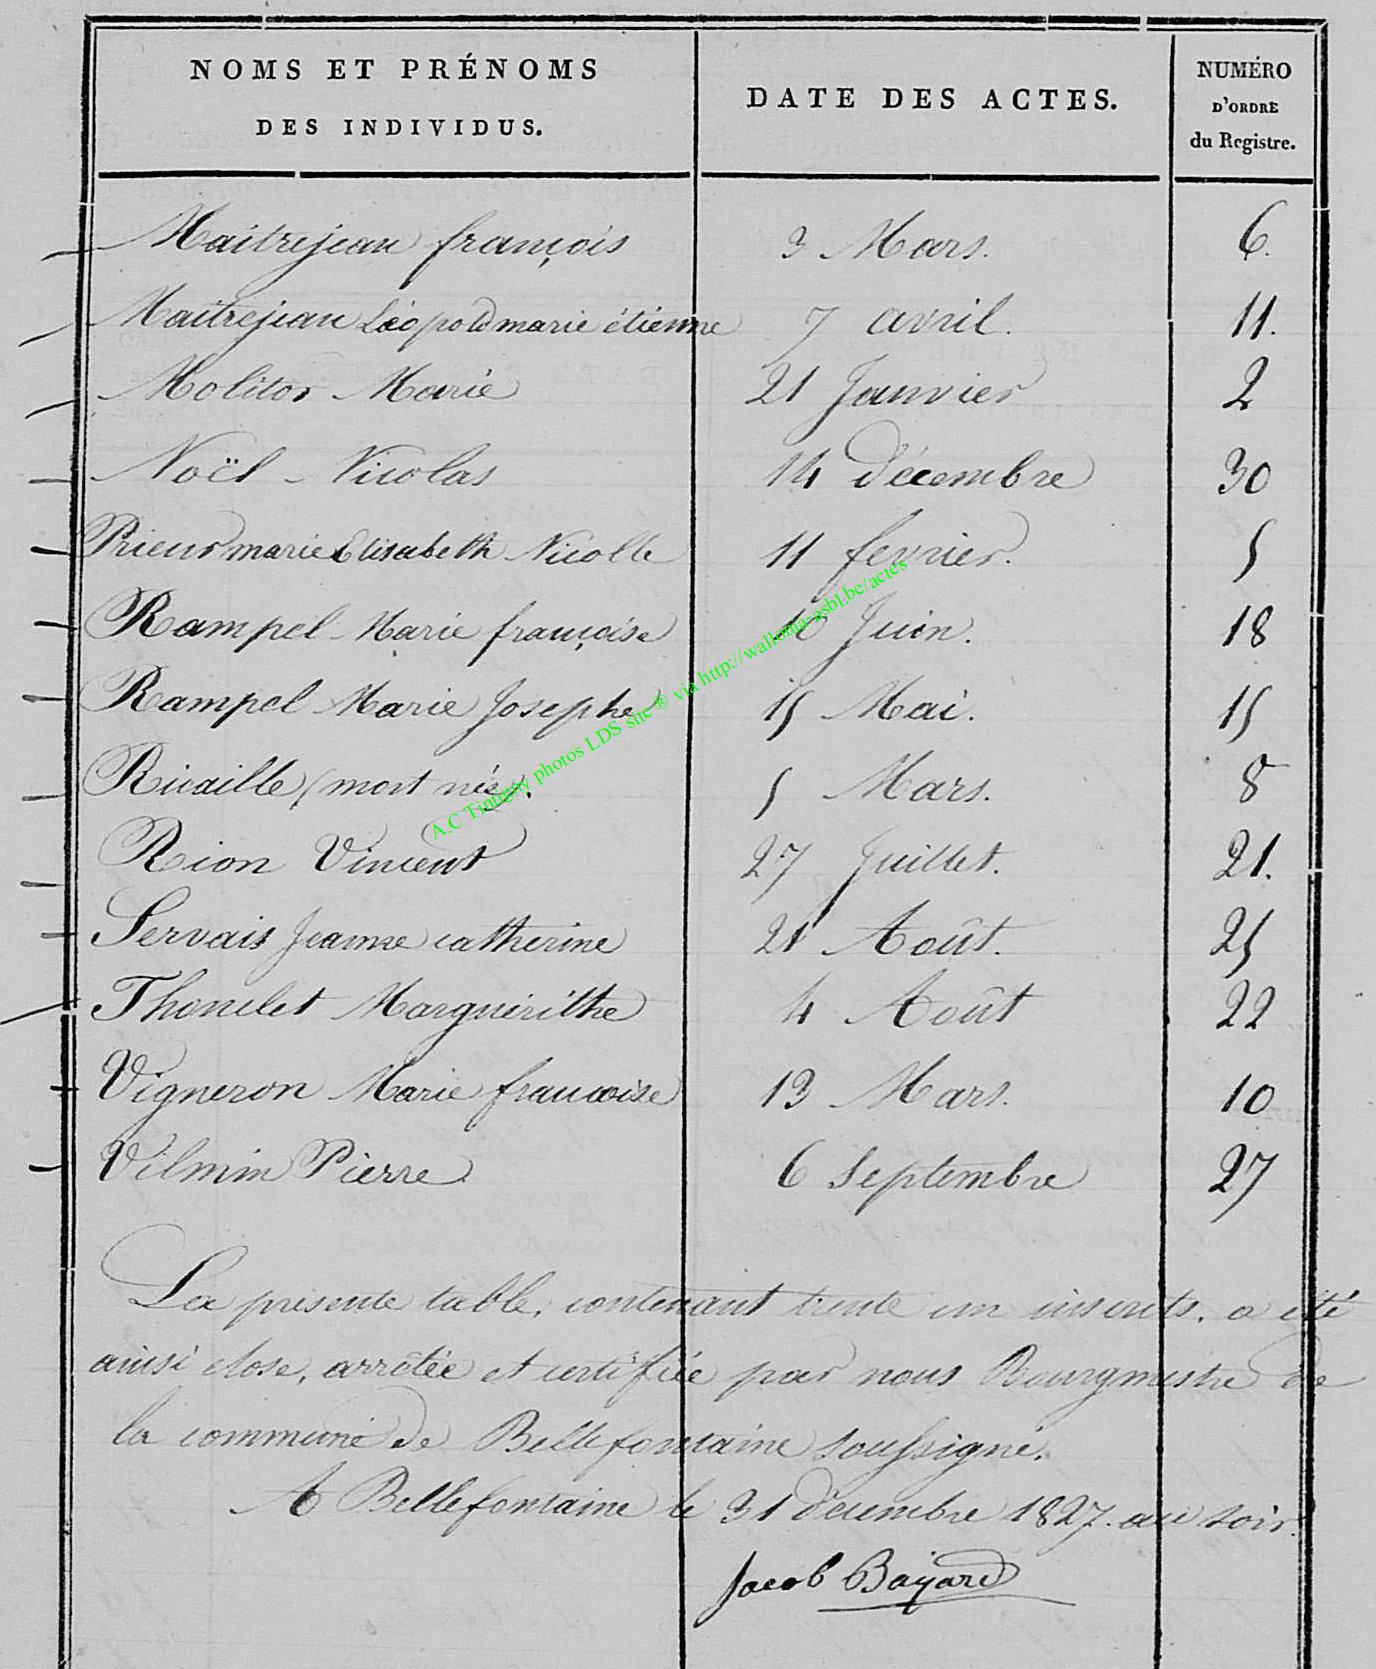 NOMS ET PRÉNOMS
DES INDIVIDUS.
DATE DES ACTES.
NUMÉRO
D'ORDRE
du Registre.
Maitrejean françois 3 Mars. 6.
Maitrejean Léopold marie étienne 7 avril. 11.
Molitor Marie 21 Janvier 2
Noël Nicolas 14 décembre 30
Prieur marie Elisabeth Nicolle 11 fevrier. 5
Rampel Marie françoise 10 Juin. 18
Rampel Marie Josephe 15 Mai. 15
Ricaille (mort née). 5 Mars. 8
Rion Vincent 27 Juillet. 21.
Servais Jeanne catherine 21 Août. 25
Thonelet Marguerithe 4 Août 22
Vigneron Marie francoise 13 Mars. 10
Vilmin Pierre 6 Septembre 27
La présente table, contenant trente un inscrits, a été
ainsi close, arrêtée et certifiée par nous Bourgmestre de
la commune de Bellefontaine soussigné.
A Bellefontaine le 31 décembre 1827. au soir.
Jacob Bayard
A.C Tintigny photos LDS site ® via http://wallonia-asbl.be/actes